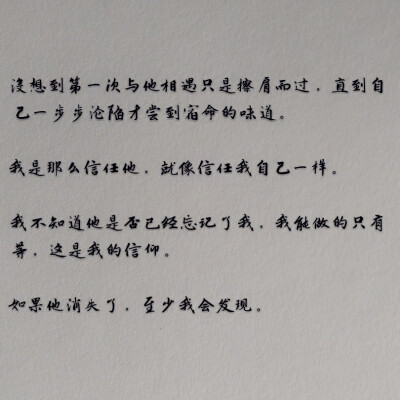 没想到第一次与他相遇只是擦肩而过，直到自
己一步步沦陷才尝到宿命的味道。
我是那么信任他，就像信任我自己一样。
我不知道他是否已经忘记了我，我能做的只有
等，这是我的信仰。
如果他消失了，至少我会发现。